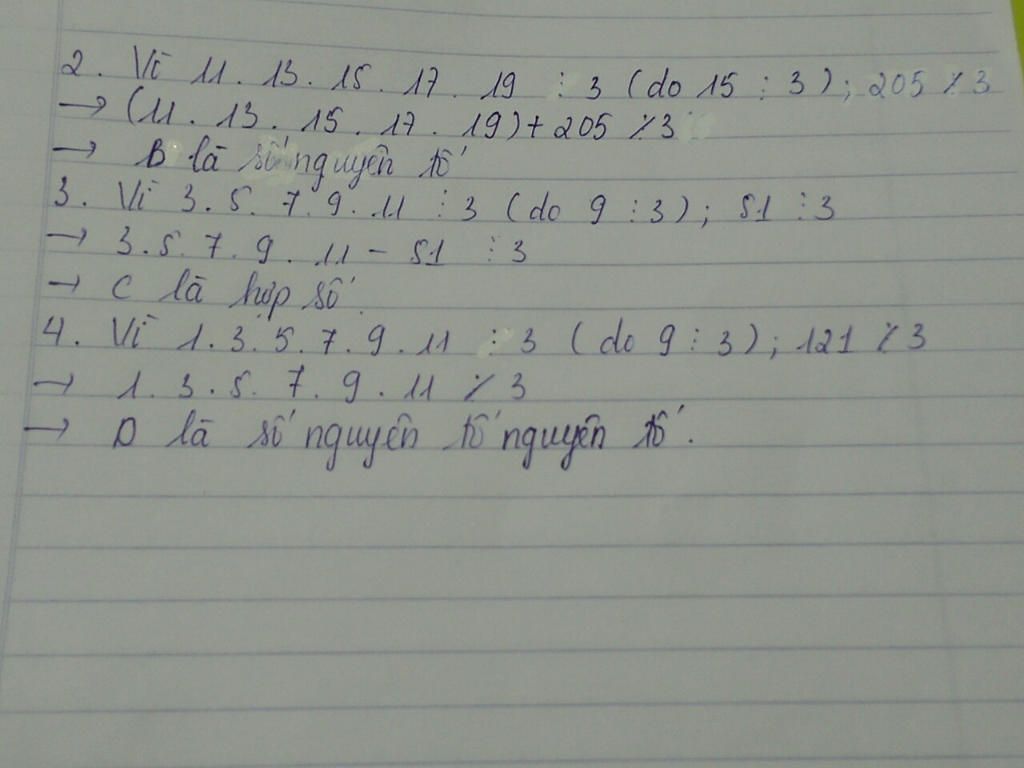 2. Vì 11. 13. 15. 17. 19 ⋮ 3 (do 15 ⋮ 3); 205 ⋮̸ 3
→ (11. 13. 15. 17. 19) + 205 ⋮̸ 3
→ B là số nguyên tố
3. Vì 3. 5. 7. 9. 11 ⋮ 3 (do 9 ⋮ 3); 51 ⋮ 3
→ 3. 5. 7. 9. 11 - 51 ⋮ 3
→ C là hợp số.
4. Vì 1. 3. 5. 7. 9. 11 ⋮ 3 (do 9 ⋮ 3); 121 ⋮̸ 3
→ 1. 3. 5. 7. 9. 11 ⋮̸ 3
→ D là số nguyên tố nguyên tố.